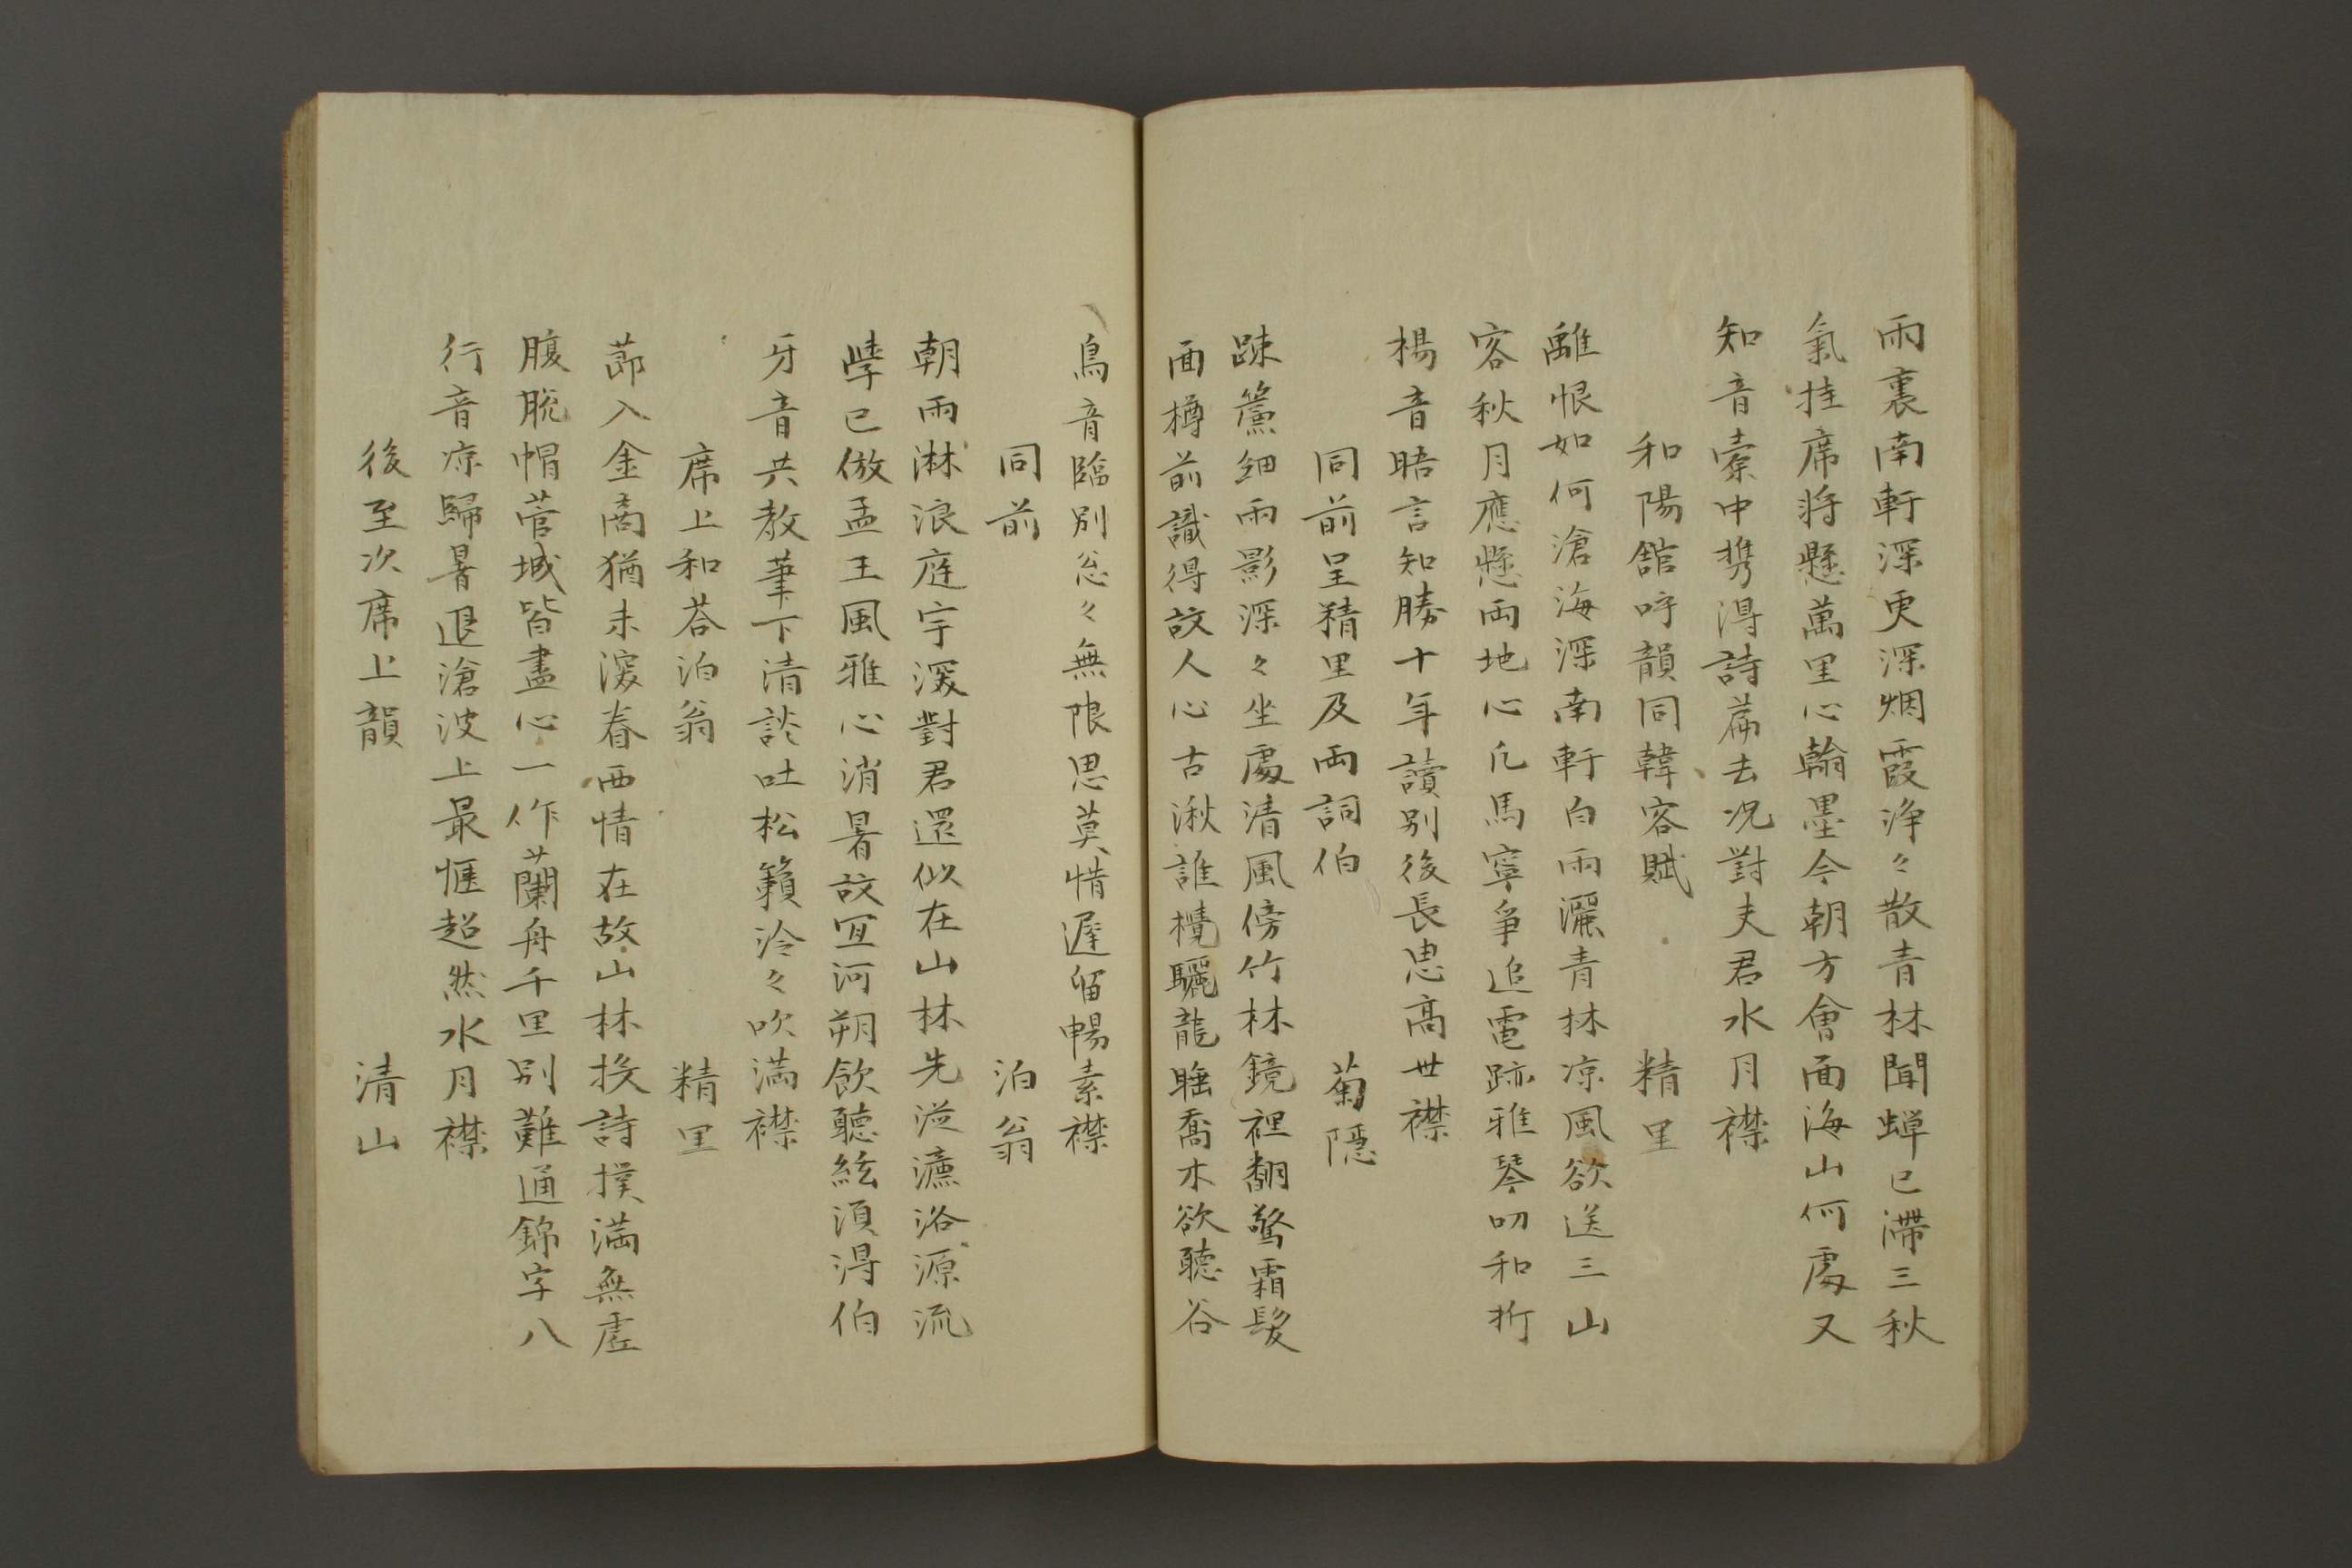 雨裏南軒深更深烟霞浄々散青林聞蝉已滞三秋
氣挂席將懸萬里心翰墨今朝方會面海山何處又
知音橐中携得詩篇去况對夫君水月襟
和陽舘呼韻同韓客賦　精里
離恨如何滄海深南軒白雨灑青林凉風欲送三山
客秋月應懸両地心凡馬寧争追電跡雅琴叨和折
楊音晤言知勝十年讀別後長思高世襟
同前呈精里及両詞伯　菊隱
疎簾細雨影深々坐處清風傍竹林鏡裡翻驚霜髮
面樽前識得故人心古湫誰攪驪龍睡喬木欲聽谷
鳥音臨別怱々無限思莫惜遲留暢素襟
同前　泊翁
朝雨淋浪庭宇深對君還似在山林先從濂洛源流
學已倣孟王風雅心消暑故宜河朔飲聽絃須得伯
牙音共教筆下清談吐松籟泠々吹満襟
席上和答泊翁　精里
莭入金商猶未深眷西情在故山林投詩撲満無虚
腹脱帽菅城皆盡心一作蘭舟千里別難通錦字八
行音凉歸暑退滄波上最愜超然水月襟
後至次席上韻　清山